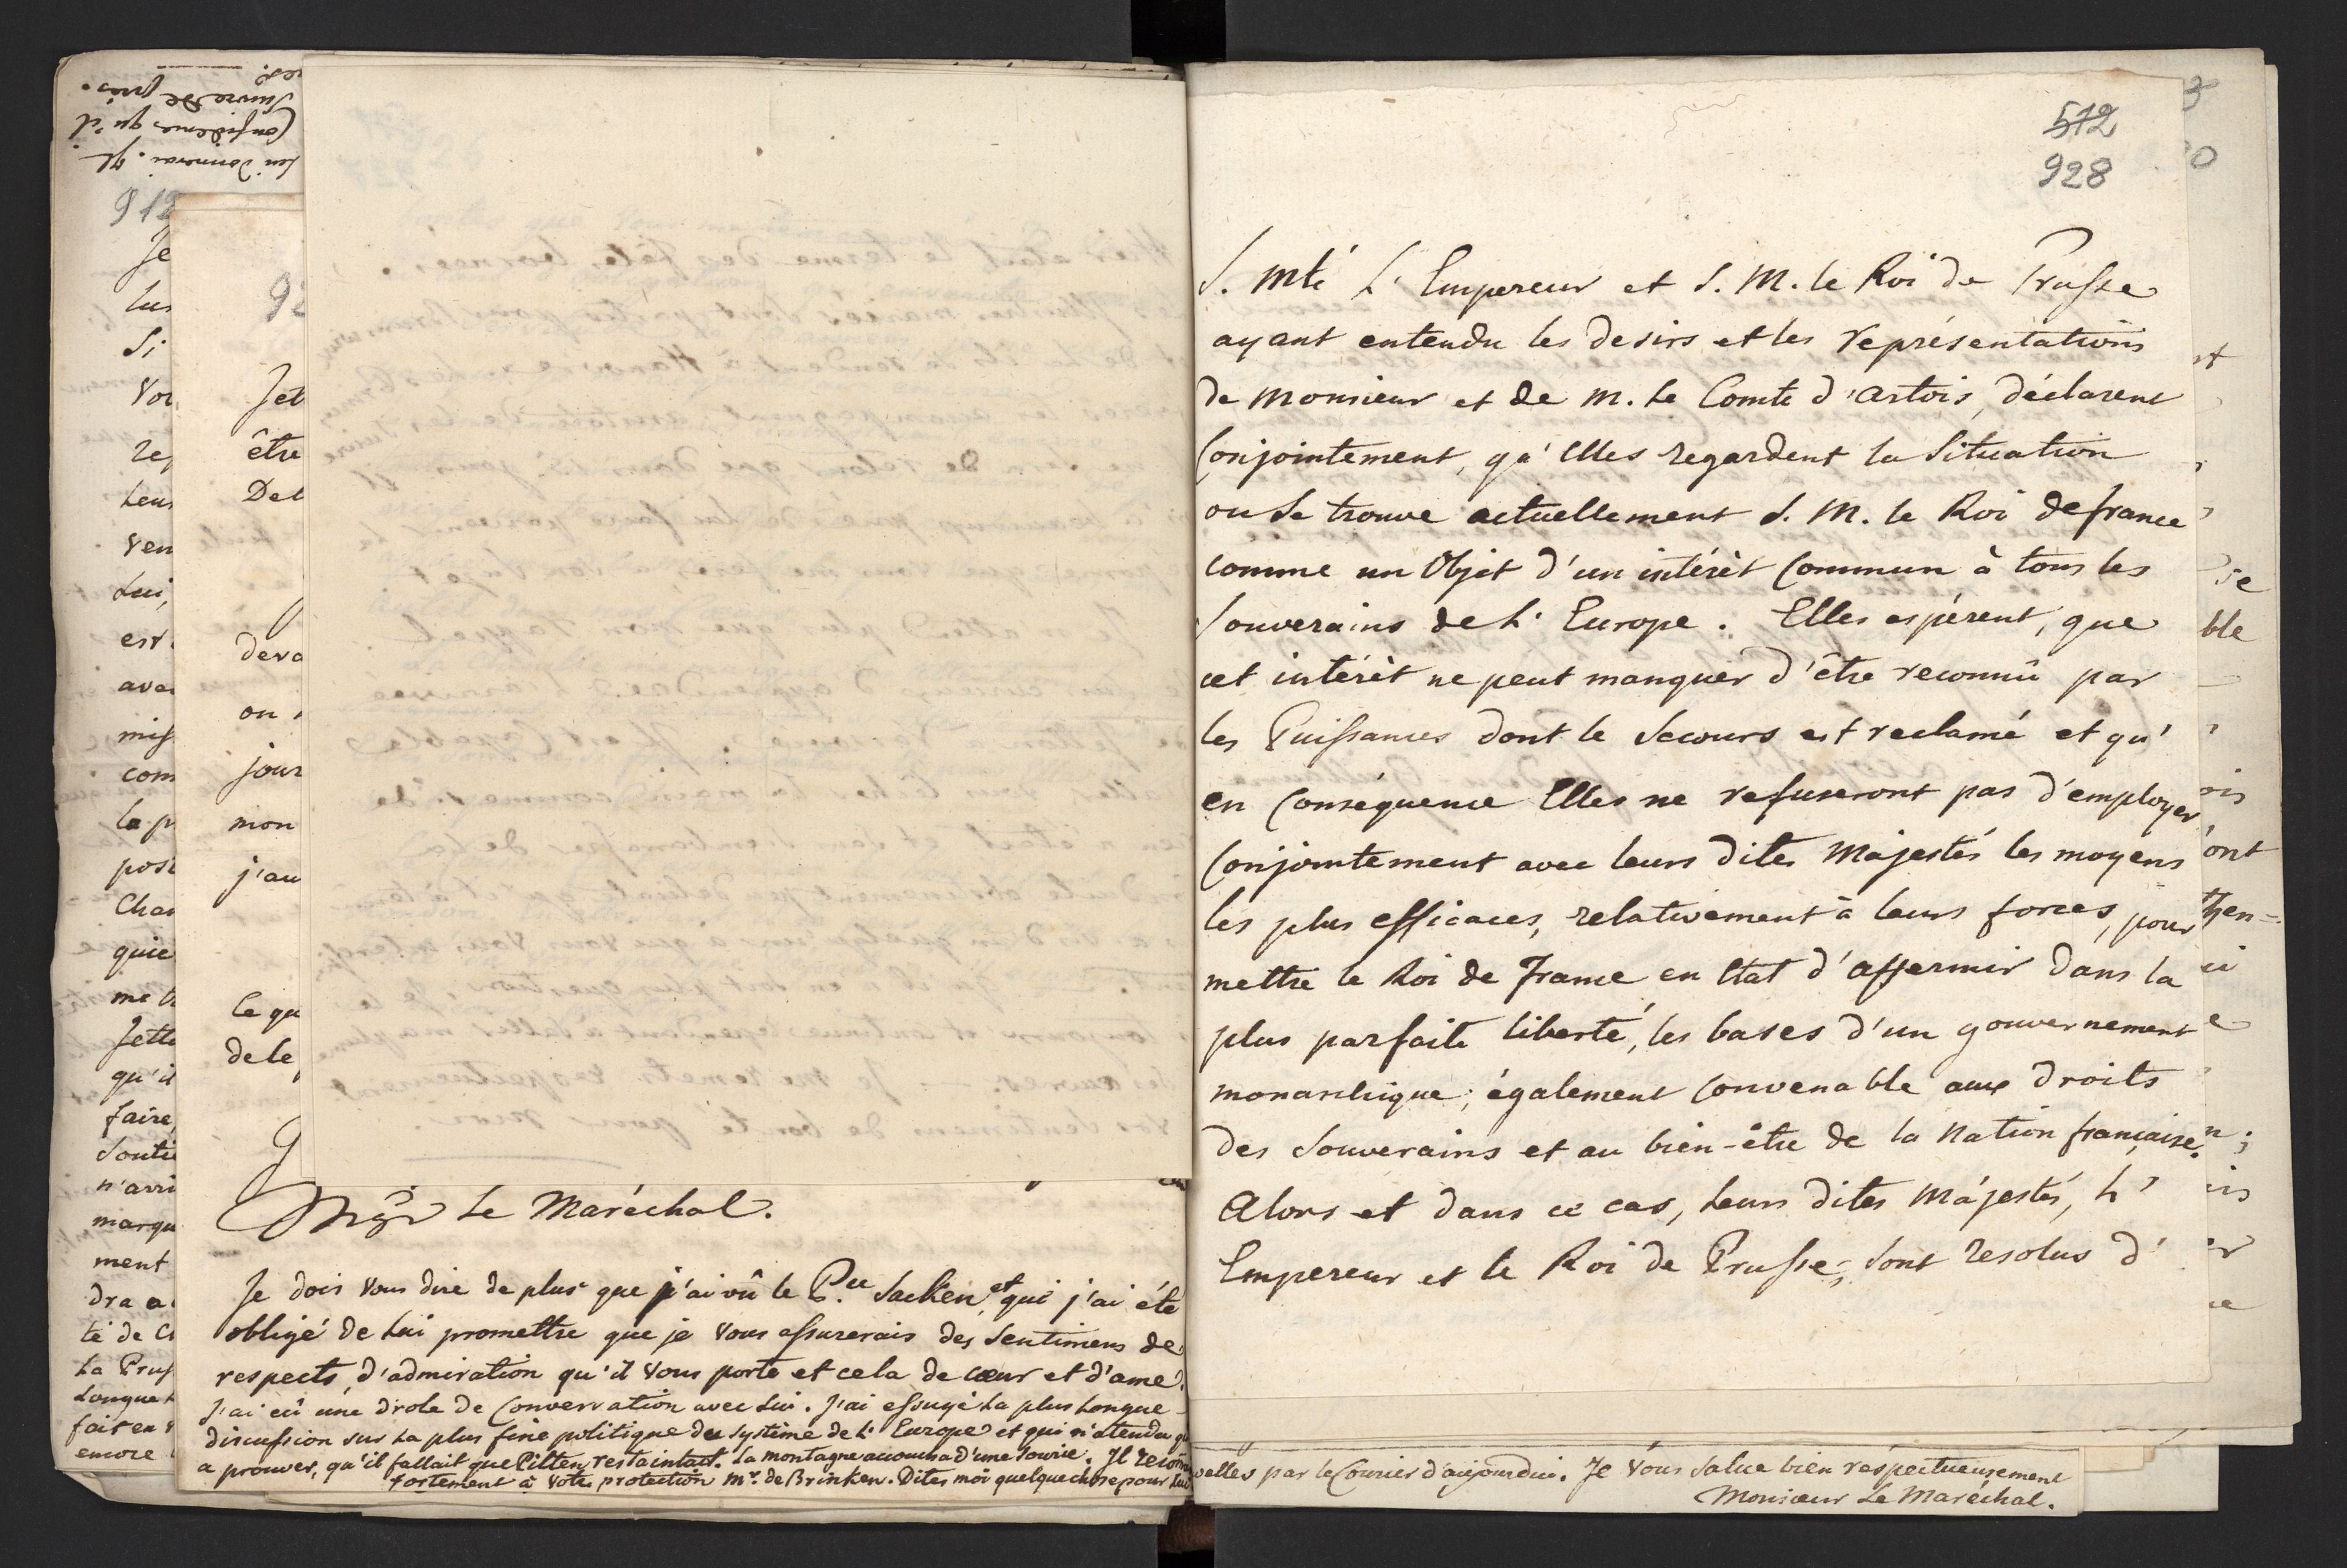 912
Je
lus
Si
Vou
leur
Ven
Lui,
est
avai
miss
com
la p
post
Char
quie
me
Jette
qu'il
faire,
Souti
n'arri
marqu
ment
dra a
té de
La Prus
Longue
fait en
encore
92
Jet
être
Det
deva
on
jour
mon
j'au
Ce qu
de le
Mgr Le Maréchal.
Je dois Vous dire de plus que j'ai vû le Pce Sacken, et qui j'ai été
obligé de lui promettre que je Vous assurerais des Sentimens de
respects, d'admiration qu'il Vous porte et cela de cœur et d'ame.
J'ai eû une drole de Conversation avec Lui. J'ai essuyé La plus Longue
discussion sur La plus fine politique du Systême de L'Europe et qui n'atendu qu
a prouver, qu'il fallait que Pilten restaintact. La montagne accoucha d'une Sourie. Il recom
fortement à Votre protection Mr. de Brinken. Dites moi quelque chose pour Lui
572
928
S. Mté L'Empereur et S. M. le Roi de Prusse
ayant entendu les desirs et les représentations
de Monsieur et de M. le Comte d'Artois, déclarent
Conjointement, qu'Elles regardent la Situation
ou Se trouve actuellement S. M. le Roi de france
comme un Objet d'un intérèt Commun à tous les
Souverains de L'Europe. Elles espérent, que
cet intérèt ne peut manquer d'être reconnû par
les Puissances dont le Secours est reclamé et qu'
en Conséquence Elles ne refuseront pas d'employer
Conjointement avec leurs dites Majestés les moyens
les plus efficaces, relativement à leurs forces, pour
mettre le Roi de France en Etat d'affermir dans la
plus parfaite liberté, les bases d'un gouvernement
monarchique; également Convenable aux droits
des Souverains et au bien-être de la Nation française.
Alors et dans ce cas, Leurs dites Majestés, L'
Empereur et le Roi de Prusse, sont resolus d'
velles par le Courier d'aujourdui. Je Vous Salue bien réspectueusement
Monsieur Le Maréchal.